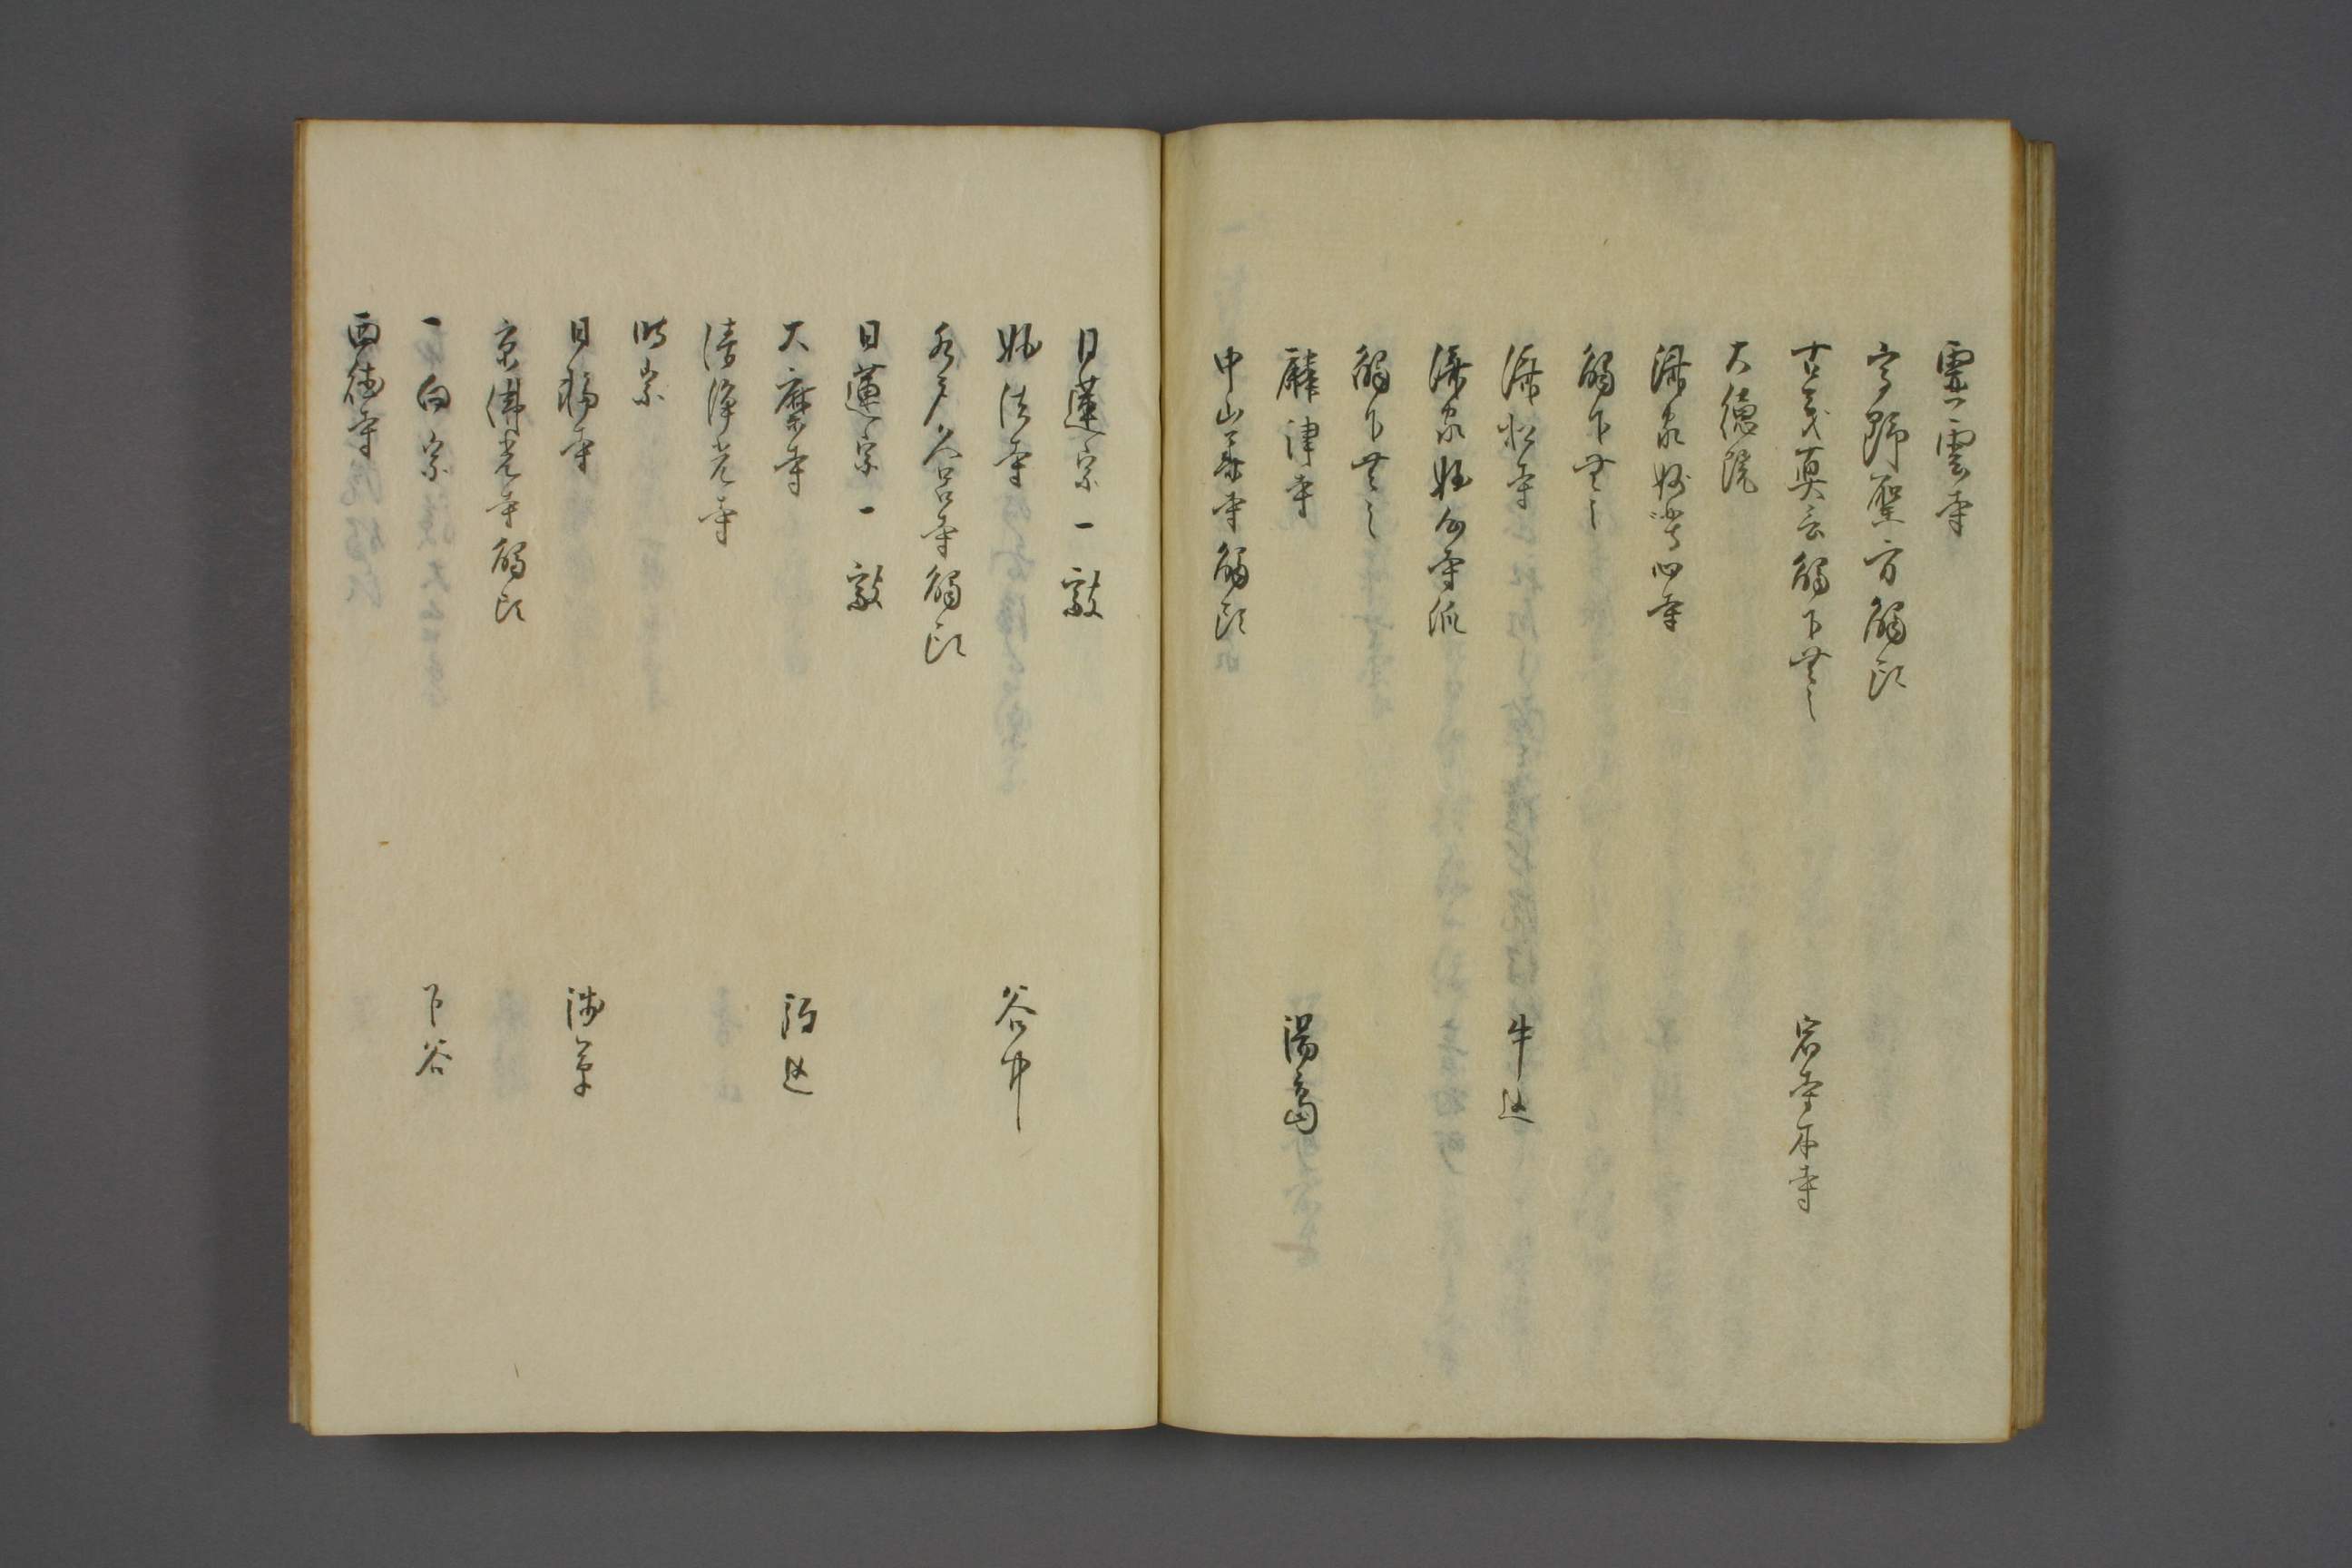 霊雲寺
高野聖方觸頭
古義真言觸下無之
大徳院
宕在本寺
済家妙心寺
觸下無之
済松寺
牛込
済家妙心寺派
觸下無之
麟祥寺
湯嶋
中山　寺觸頭
日蓮宗一致
妙法寺
谷中
水戸久昌寺觸頭
日蓮宗一致
大乗寺
駒込
清浄光寺
時宗
日輪寺
浅草
京佛光寺觸頭
一向宗
下谷
西徳寺